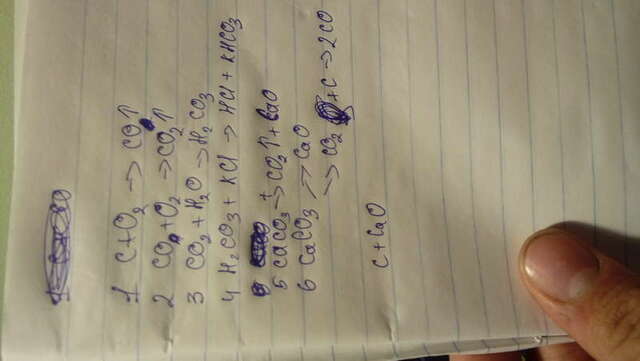 1 C + O₂ → CO↑
2 CO + O₂ → CO₂↑
3 CO₂ + H₂O → H₂CO₃
4 H₂CO₃ + KCl → HCl + KHCO₃
5 CaCO₃ →ᵗ CO₂↑ + CaO
6 CaCO₃ ↗ CaO
↘ CO₂ + C → 2CO
C + CaO